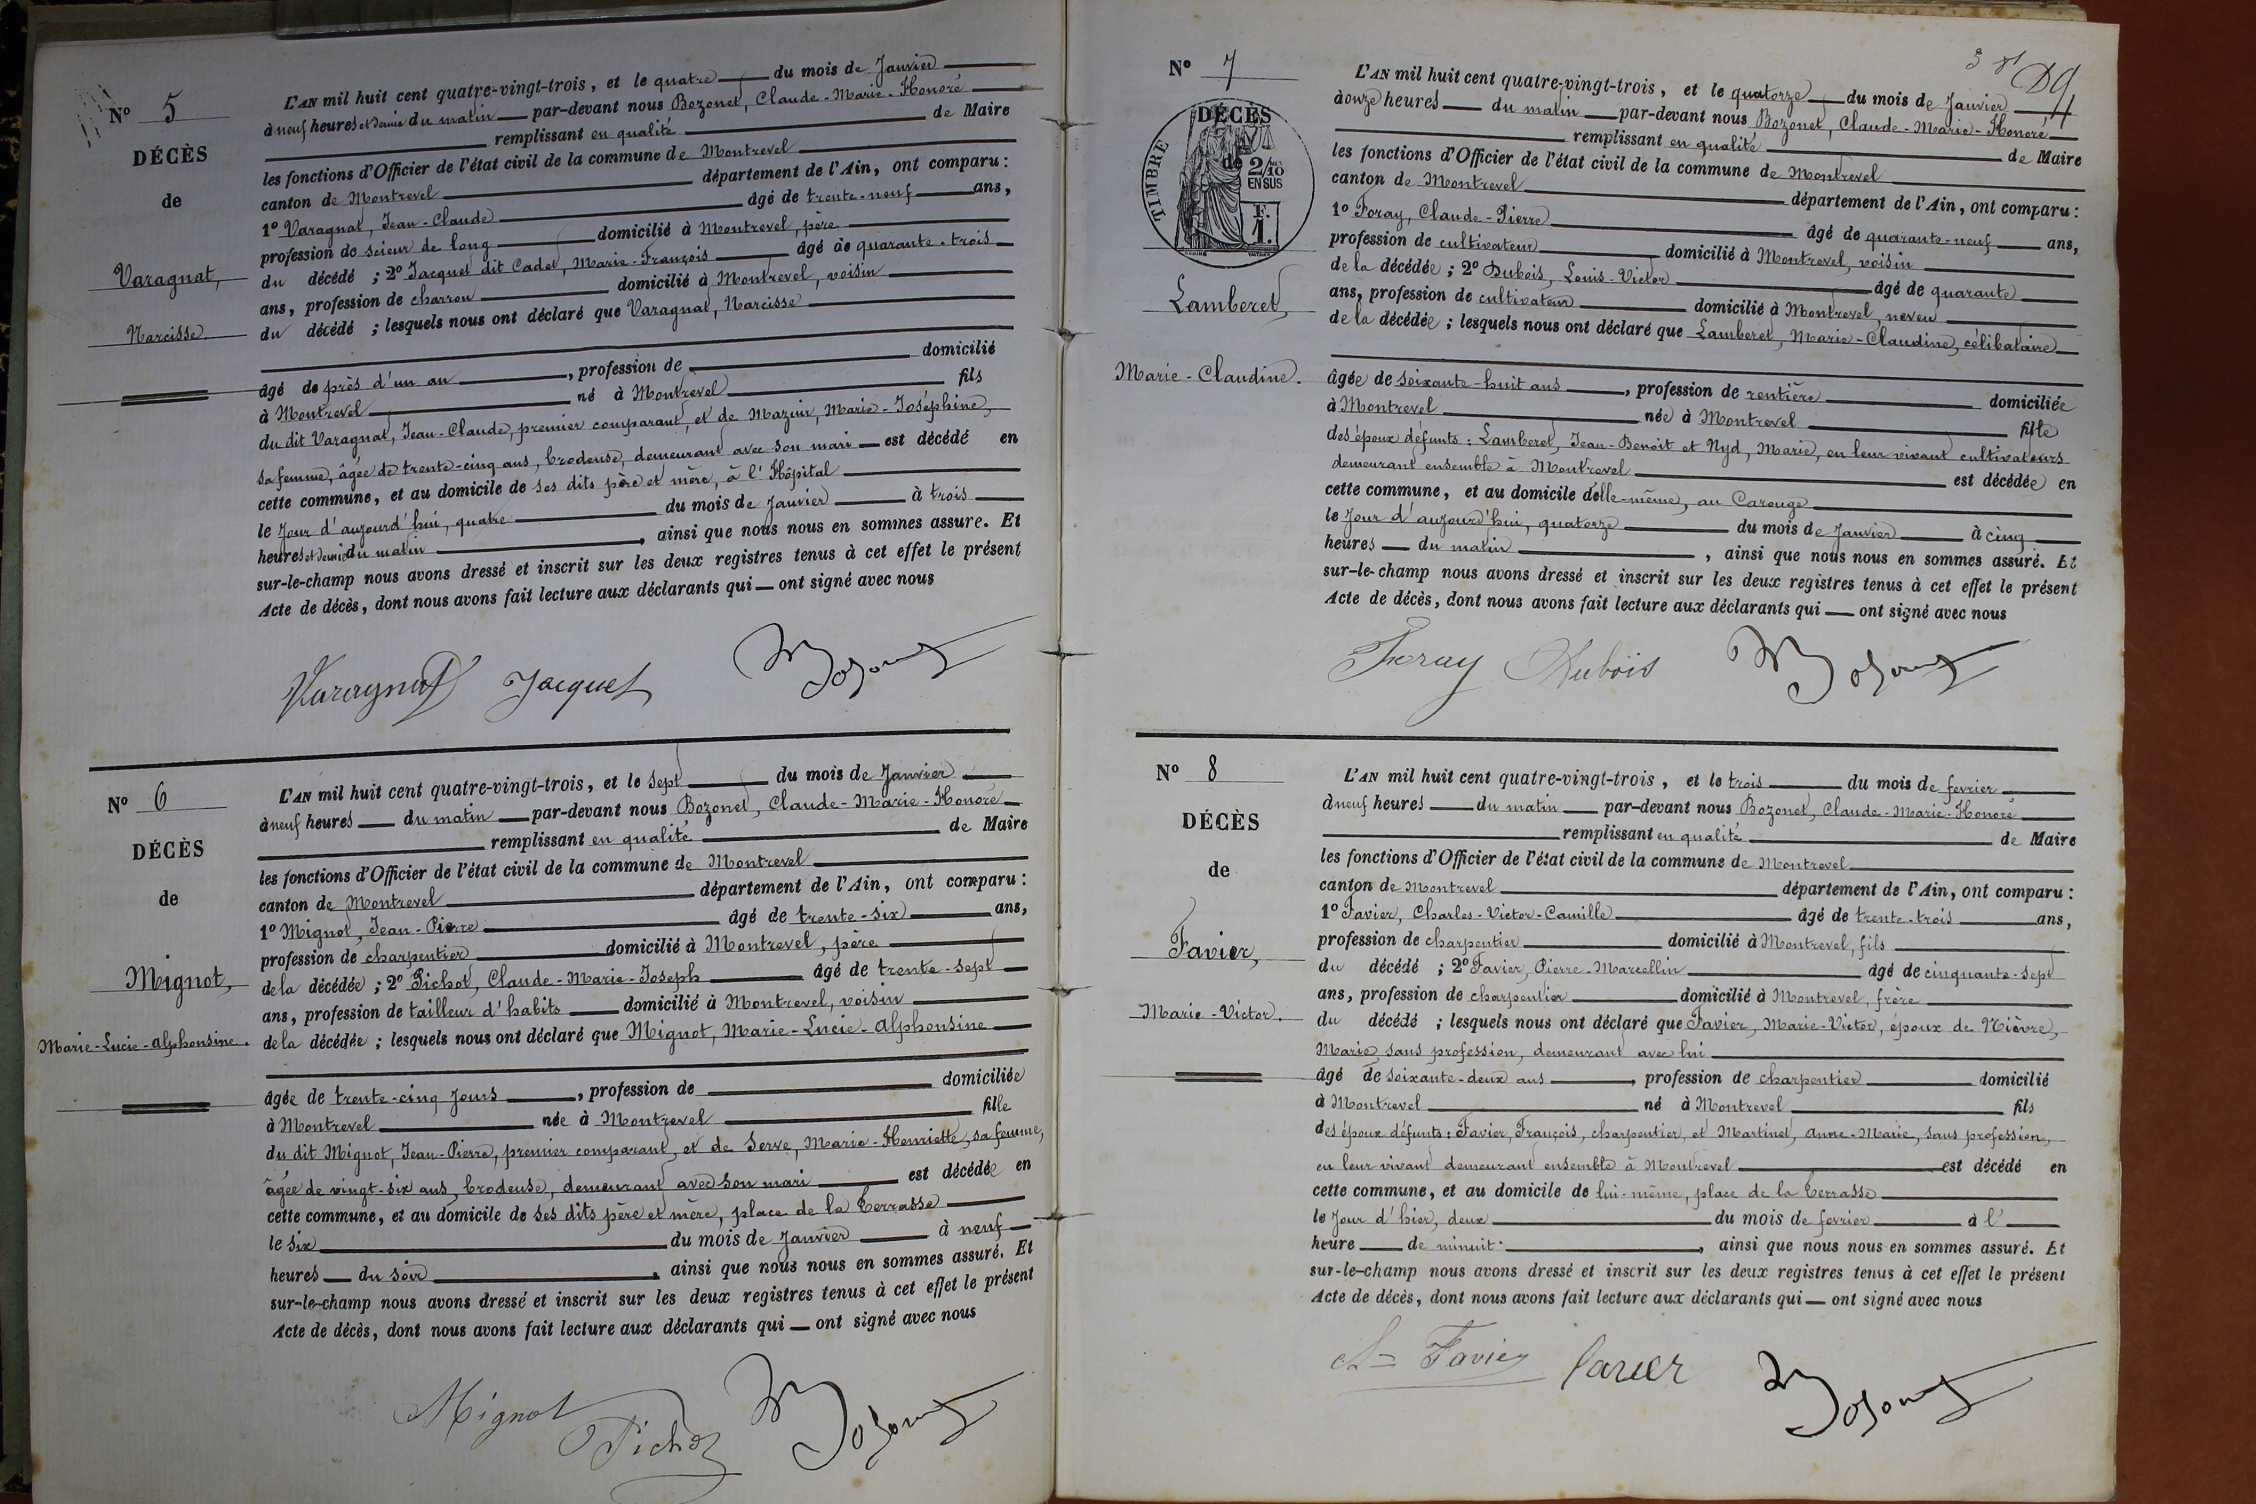 N° 5
DÉCÈS
de
Varagnat,
Narcisse.
L'AN mil huit cent quatre-vingt-trois, et le quatre du mois de Janvier
à neuf heures et demie du matin par-devant nous Bozonet, Claude-Marie-Honoré
remplissant en qualité de Maire
les fonctions d'Officier de l'état civil de la commune de Montrevel
canton de Montrevel département de l'Ain, ont comparu :
1° Varagnat, Jean-Claude âgé de trente-neuf ans,
profession de scieur de long domicilié à Montrevel, père
du décédé ; 2° Jacquet dit Cadet, Marie-François âgé de quarante-trois
ans, profession de charron domicilié à Montrevel, voisin
du décédé ; lesquels nous ont déclaré que Varagnat, Narcisse
âgé de près d'un an, profession de domicilié
à Montrevel né à Montrevel fils
du dit Varagnat, Jean-Claude, premier comparant, et de Mazuir, Marie-Joséphine,
sa femme, âgée de trente-cinq ans, brodeuse, demeurant avec son mari est décédé en
cette commune, et au domicile de ses dits père et mère, à l'Hôpital
le Jour d'aujourd'hui, quatre du mois de Janvier à trois
heures et demie du matin, ainsi que nous nous en sommes assuré. Et
sur-le-champ nous avons dressé et inscrit sur les deux registres tenus à cet effet le présent
Acte de décès, dont nous avons fait lecture aux déclarants qui ont signé avec nous
Varagnat Jacquet Bozonet
N° 6
DÉCÈS
de
Mignot,
Marie-Lucie-Alphonsine.
L'AN mil huit cent quatre-vingt-trois, et le sept du mois de Janvier
à neuf heures du matin par-devant nous Bozonet, Claude-Marie-Honoré
remplissant en qualité de Maire
les fonctions d'Officier de l'état civil de la commune de Montrevel
canton de Montrevel département de l'Ain, ont comparu :
1° Mignot, Jean-Pierre âgé de trente-six ans,
profession de charpentier domicilié à Montrevel, père
de la décédée ; 2° Pichot, Claude-Marie-Joseph âgé de trente-sept
ans, profession de tailleur d'habits domicilié à Montrevel, voisin
de la décédée ; lesquels nous ont déclaré que Mignot, Marie-Lucie-Alphonsine
âgée de trente-cinq jours, profession de domiciliée
à Montrevel née à Montrevel fille
du dit Mignot, Jean-Pierre, premier comparant, et de Serve, Marie-Henriette, sa femme,
âgée de vingt-six ans, brodeuse, demeurant avec son mari est décédée en
cette commune, et au domicile de ses dits père et mère, place de la Terrasse
le six du mois de Janvier à neuf
heures du soir, ainsi que nous nous en sommes assuré. Et
sur-le-champ nous avons dressé et inscrit sur les deux registres tenus à cet effet le présent
Acte de décès, dont nous avons fait lecture aux déclarants qui ont signé avec nous
Mignot Pichot Bozonet
N° 7
DÉCÈS
de
TIMBRE
2/10
EN SUS
F.
1.
Lamberet,
Marie-Claudine.
L'AN mil huit cent quatre-vingt-trois, et le quatorze du mois de Janvier
à onze heures du matin par-devant nous Bozonet, Claude-Marie-Honoré
remplissant en qualité de Maire
les fonctions d'Officier de l'état civil de la commune de Montrevel
canton de Montrevel département de l'Ain, ont comparu :
1° Foray, Claude-Pierre âgé de quarante-neuf ans,
profession de cultivateur domicilié à Montrevel, voisin
de la décédée ; 2° Dubois, Louis-Victor âgé de quarante
ans, profession de cultivateur domicilié à Montrevel, neveu
de la décédée ; lesquels nous ont déclaré que Lamberet, Marie-Claudine, célibataire
âgée de soixante-huit ans, profession de rentière domiciliée
à Montrevel née à Montrevel fille
des époux défunts : Lamberet, Jean-Benoit et Nyd, Marie, en leur vivant cultivateurs
demeurant ensemble à Montrevel est décédée en
cette commune, et au domicile d'elle-même, au Carouge
le Jour d'aujourd'hui, quatorze du mois de Janvier à cinq
heures du matin, ainsi que nous nous en sommes assuré. Et
sur-le-champ nous avons dressé et inscrit sur les deux registres tenus à cet effet le présent
Acte de décès, dont nous avons fait lecture aux déclarants qui ont signé avec nous
Foray Dubois Bozonet
N° 8
DÉCÈS
de
Favier,
Marie-Victor.
L'AN mil huit cent quatre-vingt-trois, et le trois du mois de fevrier
à neuf heures du matin par-devant nous Bozonet, Claude-Marie-Honoré
remplissant en qualité de Maire
les fonctions d'Officier de l'état civil de la commune de Montrevel
canton de Montrevel département de l'Ain, ont comparu :
1° Favier, Charles-Victor-Camille âgé de trente-trois ans,
profession de charpentier domicilié à Montrevel, fils
du décédé ; 2° Favier, Pierre-Marcellin âgé de cinquante-sept
ans, profession de charpentier domicilié à Montrevel, frère
du décédé ; lesquels nous ont déclaré que Favier, Marie-Victor, époux de Nièvre,
Marie, sans profession, demeurant avec lui
âgé de soixante-deux ans, profession de charpentier domicilié
à Montrevel né à Montrevel fils
des époux défunts : Favier, François, charpentier, et Martinet, Anne-Marie, sans profession,
en leur vivant demeurant ensemble à Montrevel est décédé en
cette commune, et au domicile de lui-même, place de la Terrasse
le Jour d'hier, deux du mois de fevrier à l'
heure de minuit, ainsi que nous nous en sommes assuré. Et
sur-le-champ nous avons dressé et inscrit sur les deux registres tenus à cet effet le présent
Acte de décès, dont nous avons fait lecture aux déclarants qui ont signé avec nous
Ch Favier Favier Bozonet